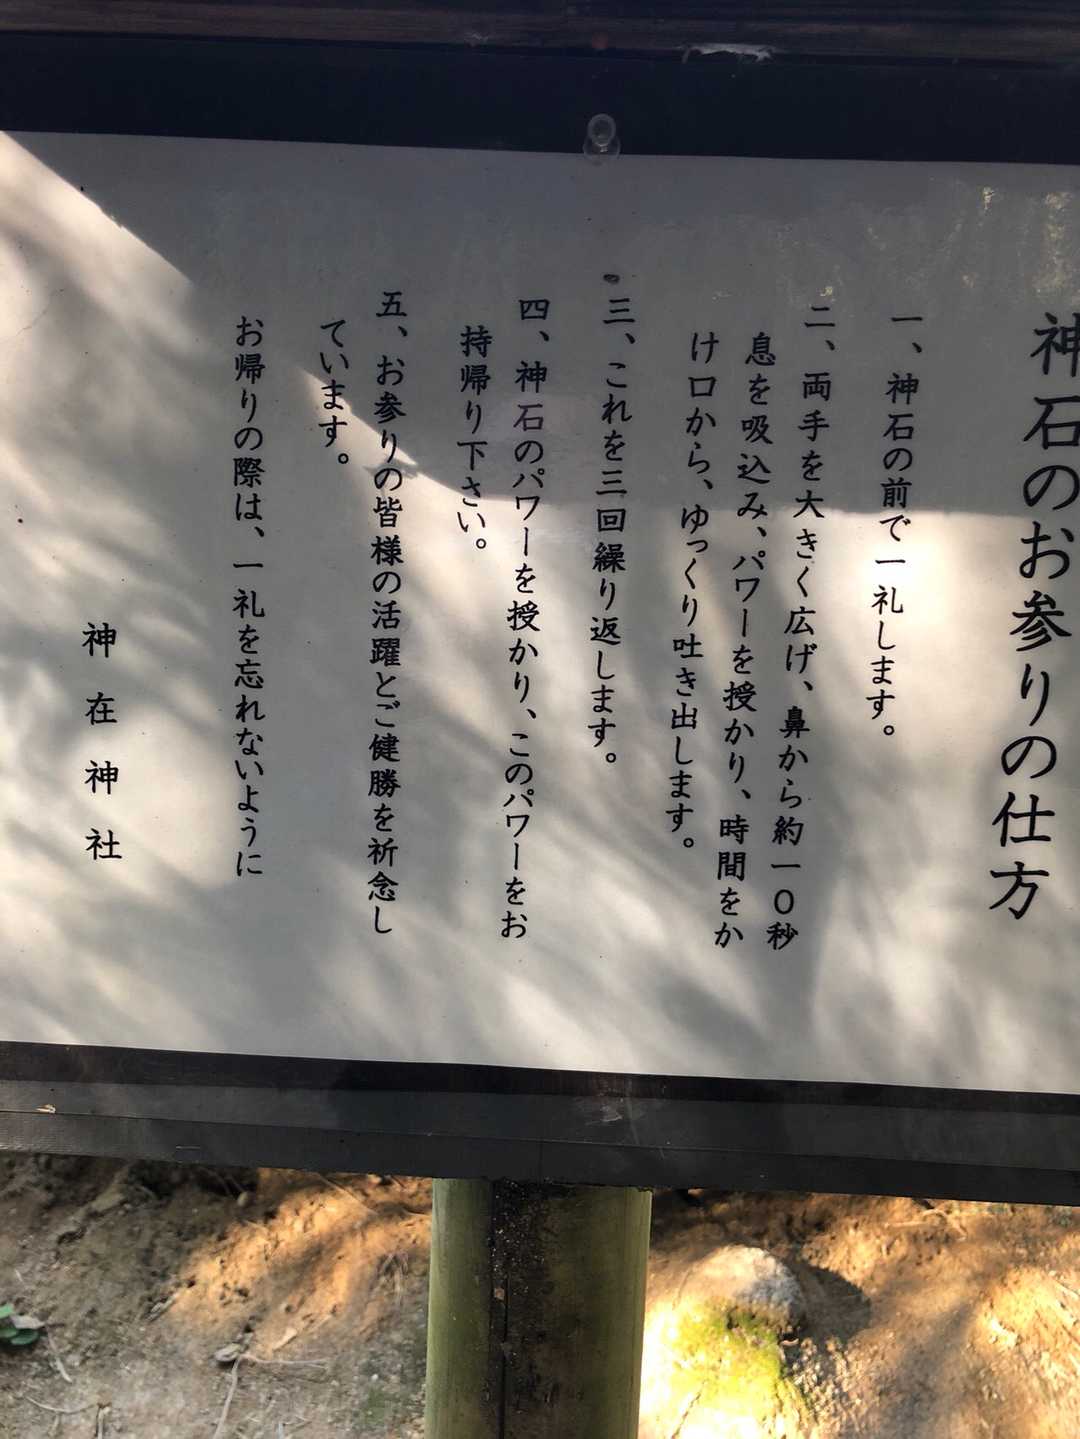 神石のお参りの仕方
一、神石の前で一礼します。
二、両手を大きく広げ、鼻から約一０秒
息を吸込み、パワーを授かり、時間をか
け口から、ゆっくり吐き出します。
三、これを三回繰り返します。
四、神石のパワーを授かり、このパワーをお
持帰り下さい。
五、お参りの皆様の活躍とご健勝を祈念し
ています。
お帰りの際は、一礼を忘れないように
神在神社